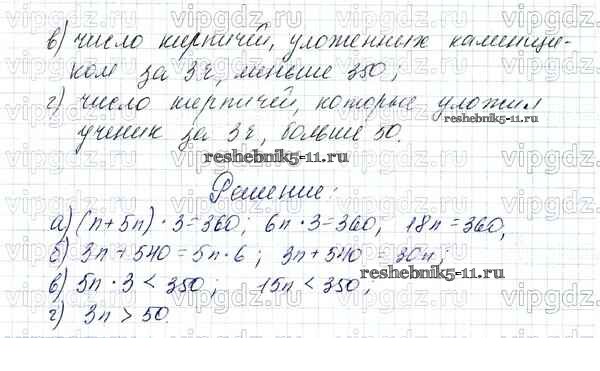 в) число кирпичей, уложенных каменщи-
ком за 3 ч, меньше 350;
г) число кирпичей, которые уложил
ученик за 3 ч, больше 50.
reshebnik5-11.ru
reshebnik5-11.ru
Решение:
а) (n+5n)·3=360; 6n·3=360; 18n=360,
б) 3n+540=5n·6; 3n+540=30n;
reshebnik5-11.ru
в) 5n·3<350; 15n<350;
г) 3n>50.